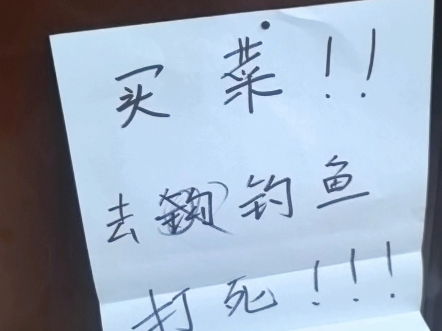 买菜!!
去钓鱼
打死!!!